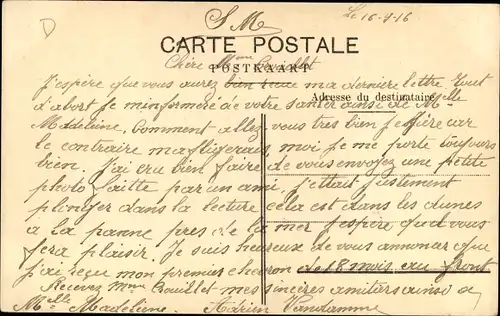 D
S M
Le 16-9-16
CARTE POSTALE
Chère Mme Crouillet
POSTKAART
J'espère que vous aurez bien reçue ma dernière lettre. Tout
Adresse du destinataire
d'abort Je m'informéré de votre santer ainsi de Melle
Madeleine, Comment allez vous très bien J'espère car
le contraire m'afligerais, moi Je me porte toujours
bien. J'ai cru bien faire de vous envoyez une petite
photo faitte par un ami, J'ettait justement
plonger dans la lecture cela est dans les dunes
a La panne près de la mer J'espère quel vous
fera plaisir. Je suis heureux de vous annoncer que
j'ai reçu mon premier chevron de 18 mois au front
Recevez Mme Crouillet mes sincères amitiers ainsi a
Melle Madeleine. Adrien Vandamme